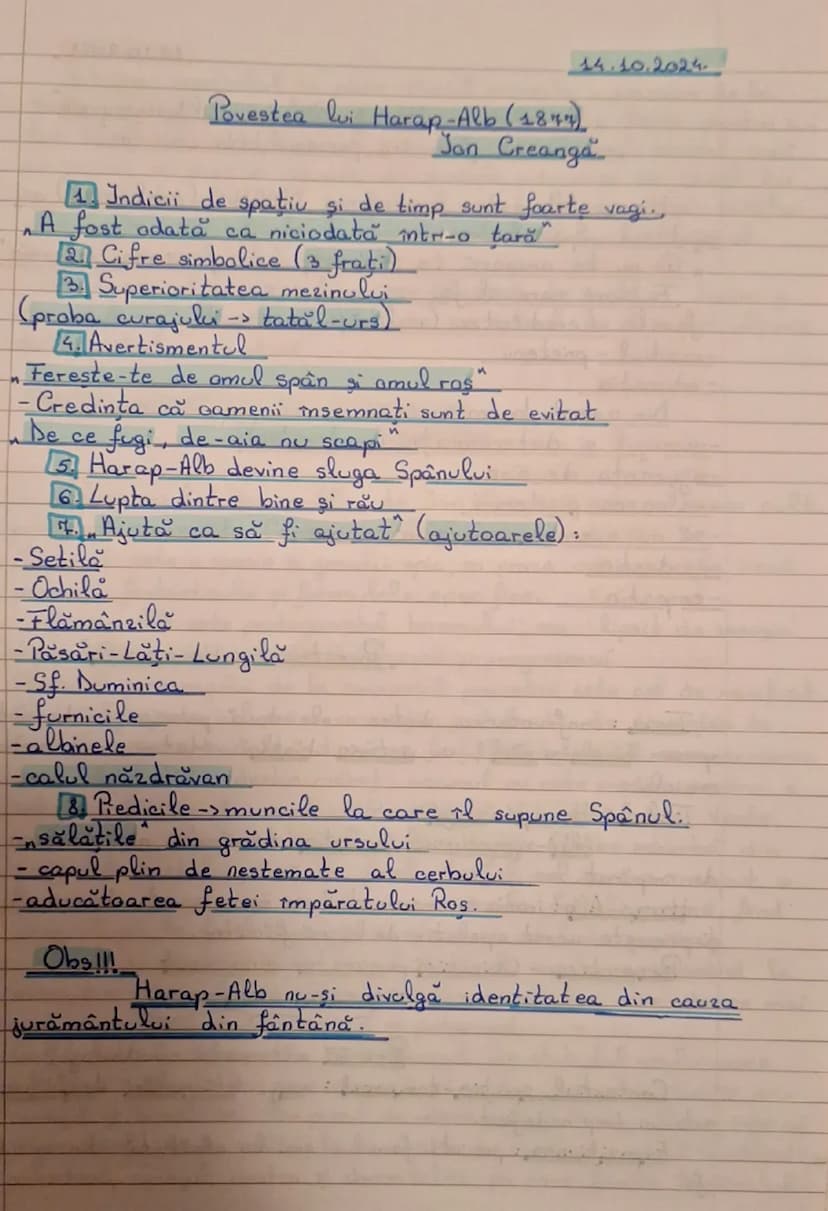 14.10.2024.
Povestea lui Harap-Alb (1877)
Ion Creangă
1. Indicii de spațiu și de timp sunt foarte vagi.
„A fost odată ca niciodată într-o țară"
2. Cifre simbolice (3 frați)
3. Superioritatea mezinului
(proba curajului -> tatăl-urs)
4. Avertismentul
„Ferește-te de omul spân și omul roș"
- Credința că oamenii însemnați sunt de evitat
„De ce fugi, de-aia nu scapi"
5. Harap-Alb devine sluga Spânului
6. Lupta dintre bine și rău
7. „Ajută ca să fi ajutat" (ajutoarele):
- Setilă
- Ochilă
- Flămânzilă
- Păsări-Lăți-Lungilă
- Sf. Duminica
- furnicile
- albinele
- calul năzdrăvan
8. Piedicile -> muncile la care îl supune Spânul.
- „sălățile" din grădina ursului
- capul plin de nestemate al cerbului
- aducătoarea fetei împăratului Roș.
Obs!!!
Harap-Alb nu-și divulgă identitatea din cauza
jurământului din fântână.